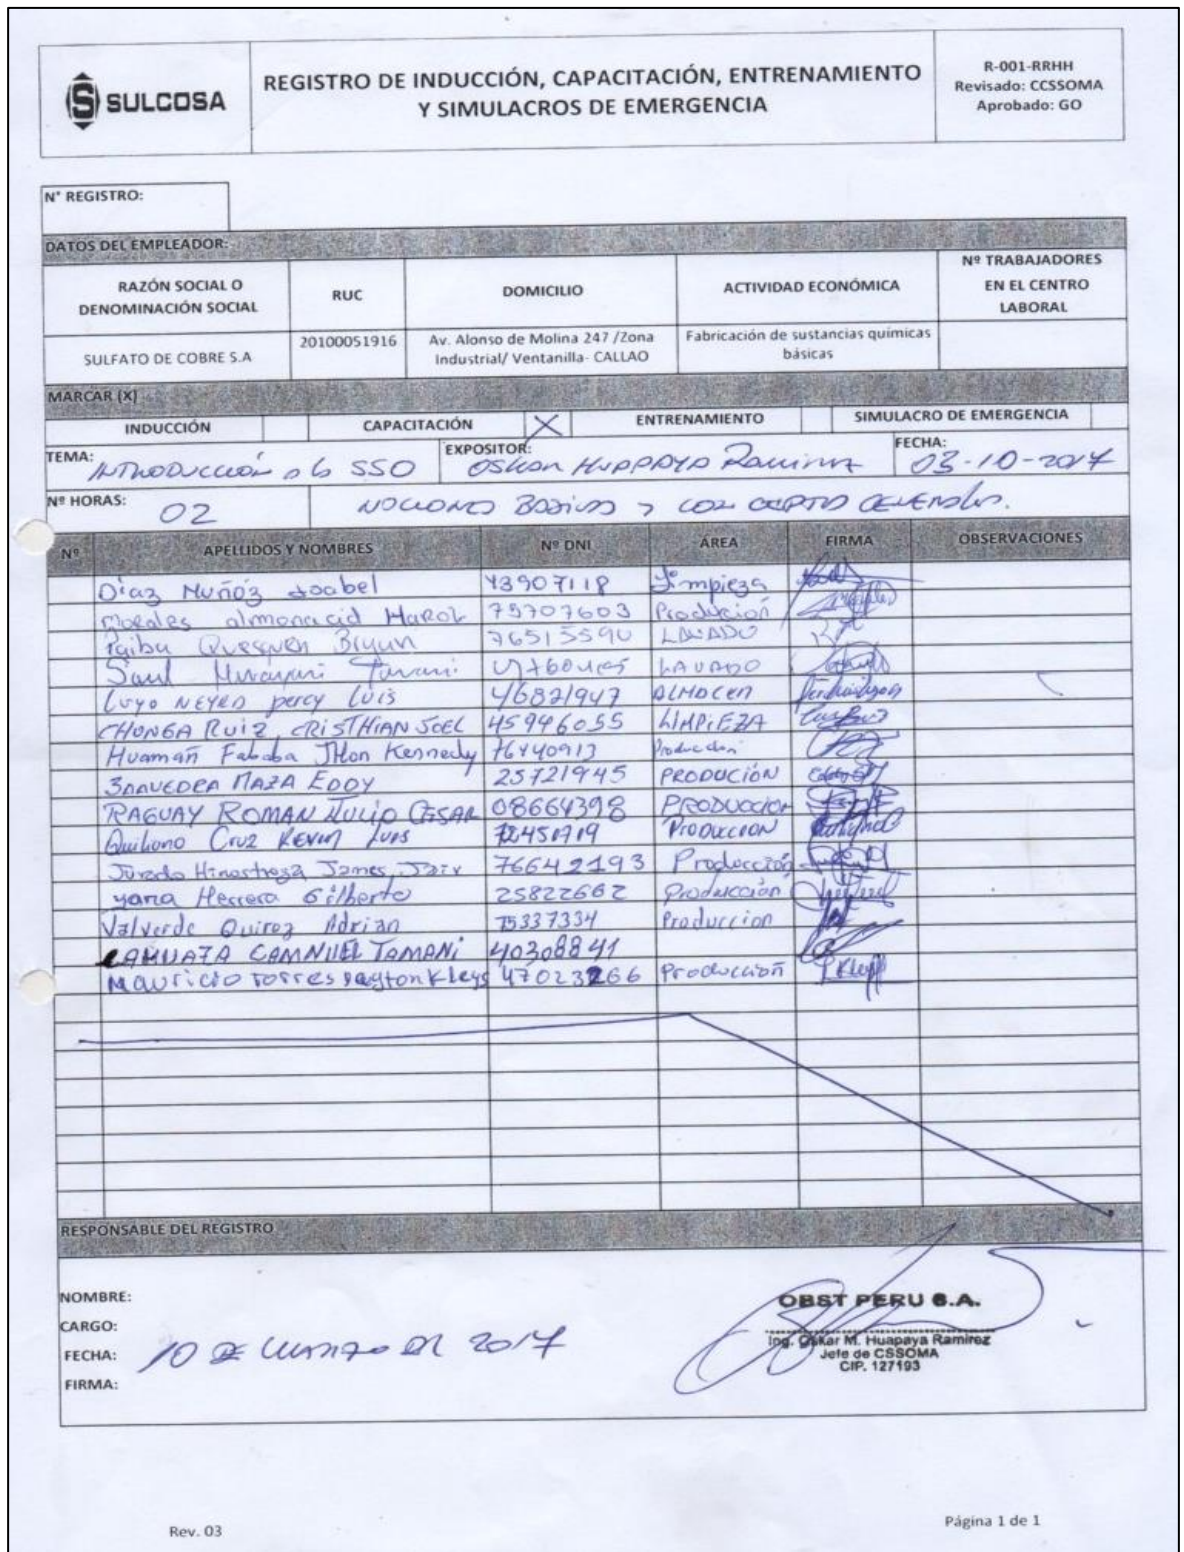 SULCOSA
REGISTRO DE INDUCCIÓN, CAPACITACIÓN, ENTRENAMIENTO
Y SIMULACROS DE EMERGENCIA
R-001-RRHH
Revisado: CCSSOMA
Aprobado: GO
N° REGISTRO:
DATOS DEL EMPLEADOR:
RAZÓN SOCIAL O DENOMINACIÓN SOCIAL RUC DOMICILIO ACTIVIDAD ECONÓMICA Nº TRABAJADORES EN EL CENTRO LABORAL
SULFATO DE COBRE S.A 20100051916 Av. Alonso de Molina 247 /Zona Industrial/ Ventanilla- CALLAO Fabricación de sustancias químicas básicas
MARCAR (X)
INDUCCIÓN CAPACITACIÓN X ENTRENAMIENTO SIMULACRO DE EMERGENCIA
TEMA: INTRODUCCIÓN a la SSO EXPOSITOR: OSKAR HUAPAYA Ramirez FECHA: 03-10-2017
Nº HORAS: 02 NOCIONES Basicas y
Nº APELLIDOS Y NOMBRES Nº DNI ÁREA FIRMA OBSERVACIONES
Díaz Muñóz Isabel 43907118 Limpieza
Morales almonacid Harol 75707603 Producion
Quesquen 76515590 LAVADO
Saul LAVADO
Luyo NEYRA percy LUIS 46821947 ALMACEN
CHONGA RUIZ CRISTHIAN JOEL 45946055 LIMPIEZA
Huamañ Jhon Kennedy 76440913 Produccion
SAAVEDRA MAZA EDDY 25721945 PRODUCIÓN
RAGUAY ROMAN JULIO CESAR 08664398 PRODUCCION
Quiliano Cruz KEVIN LUIS PRODUCCION
Jurado Hinostroza James Jair 76642193 Producción
yana Herrera Gilberto 25822662 Producción
Valverde Quiroz Adrian 75337334 Produccion
TAMANI 40308841
Mauricio Torres 47023266 Produccioñ
RESPONSABLE DEL REGISTRO
NOMBRE:
CARGO:
FECHA: 10 DE marzo DEL 2017
FIRMA:
OBST PERU S.A.
Ing. Oskar M. Huapaya Ramirez
Jefe de CSSOMA
CIP. 127193
Rev. 03
Página 1 de 1